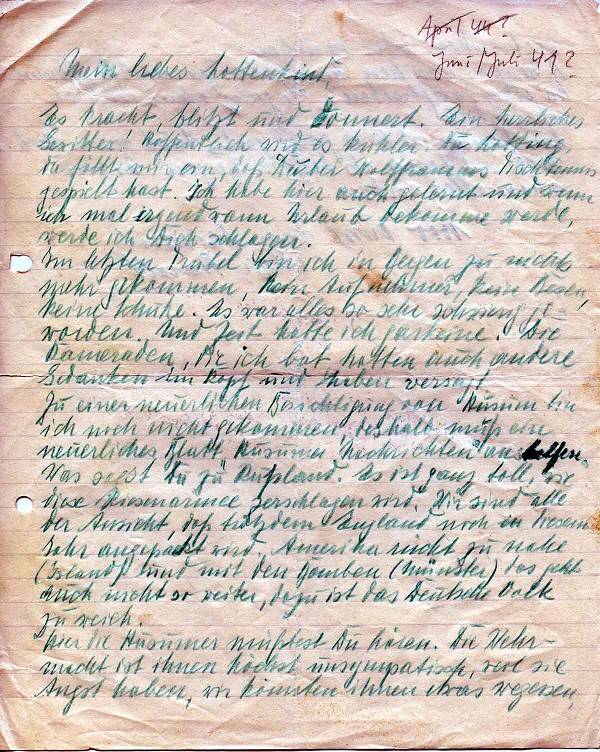 April 44?
Juni/Juli 41?
Mein liebes Lottenkind,
Es kracht, blitzt und donnert. Ein herrliches
Gewitter! Hoffentlich wird es kühler. Du
da fällt mir ein, daß Du bei Tischtennis
gespielt hast. Ich habe hier auch gelernt und wenn
ich mal irgendwann Urlaub bekomme werde,
werde ich Dich schlagen.
Im letzten Trubel bin ich in Bergen zu nichts
mehr gekommen, keine Aufnahmen, keine Besen,
keine Schuhe. Es war alles so sehr schwierig ge-
worden. Und Zeit hatte ich garkeine. Die
Kameraden, die ich bat hatten auch andere
Gedanken im Kopf und haben versagt.
Zu einer neuerlichen Besichtigung von Husum bin
ich noch nicht gekommen, deshalb muß ein
neuerliches Blatt Husumer Nachrichten aushelfen.
Was sagst Du zu Rußland. Es ist ganz toll, wie
diese Riesenarmee zerschlagen wird. Wir sind alle
der Ansicht, daß trotzdem England noch in diesem
Jahr angepackt wird. Amerika rückt zu nahe
(Island) und mit den Bomben (Münster) das geht
auch nicht so weiter, dazu ist das Deutsche Volk
zu weich.
Hier die Husumer müßtest Du hören. Die Wehr-
macht ist ihnen höchst unsympatisch, weil sie
Angst haben, wir könnten ihnen etwas wegessen,